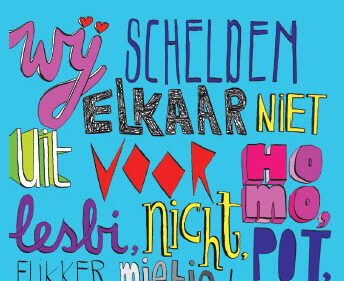 wij SCHELDEN
ELKAAR NIET
uit VOOR HOMO,
lesbi, nicht, POT,
FLIKKER mietje,